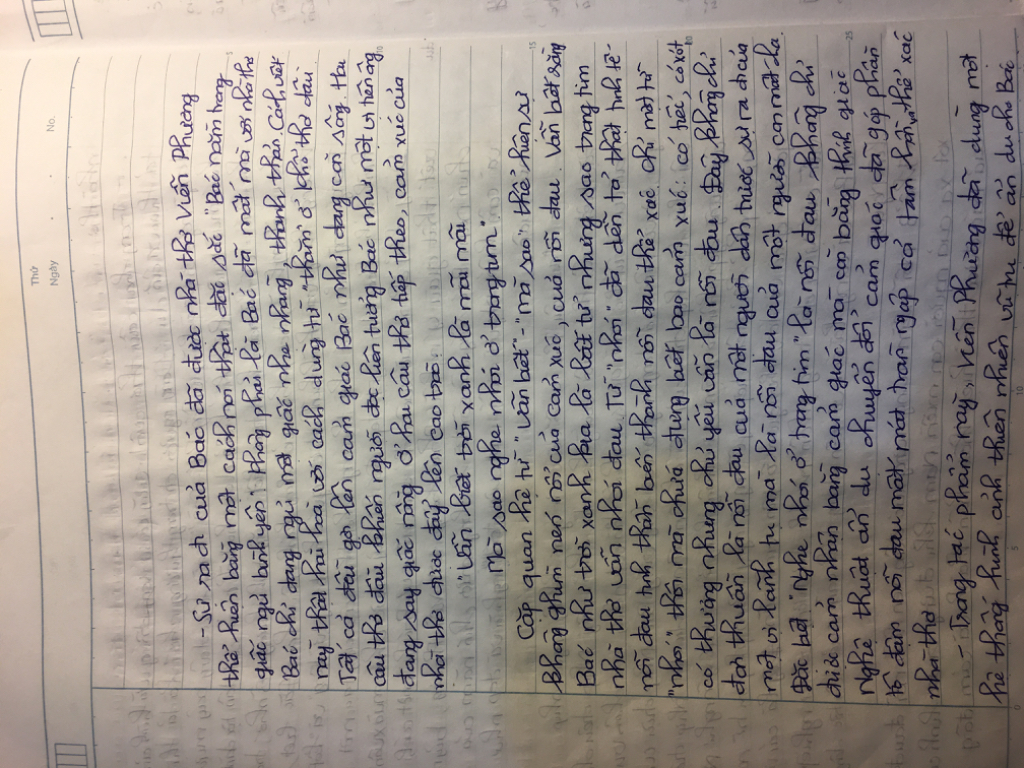 Thứ
Ngày
No.
- Sự ra đi của Bác đã được nhà thơ Viễn Phương
thể hiện bằng một cách nói thật đặc sắc "Bác nằm trong
giấc ngủ bình yên", thông phải là Bác đã mất mà với nhà thơ
Bác chỉ đang ngủ một giấc nhẹ nhàng, thanh thản. Cách viết
này thật hài hòa với cách dùng từ "thăm" ở khổ thơ đầu.
Tất cả đều gợi lên cảm giác Bác như đang còn sống. Hai
câu thơ đầu khiến người đọc liên tưởng Bác như một vị tiên ông
đang say giấc nồng. Ở hai câu thơ tiếp theo, cảm xúc của
nhà thơ được đẩy lên cao trào:
"Vẫn biết trời xanh là mãi mãi
Mà sao nghe nhói ở trong tim"
Cặp quan hệ từ "vẫn biết" - "mà sao" thể hiện sự
không ghìm nén nổi của cảm xúc, của nỗi đau. Vẫn biết rằng
Bác như trời xanh kia là bất tử nhưng sao trong tim
nhà thơ vẫn nhói đau. Từ "nhói" đã diễn tả thật tinh tế
nỗi đau tinh thần biến thành nỗi đau thể xác chỉ một từ
"nhói" thôi mà chứa đựng biết bao cảm xúc: có tiếc, có xót
có thương nhưng chủ yếu vẫn là nỗi đau. Đây không chỉ
đơn thuần là nỗi đau của một người dân trước sự ra đi của
một vị lãnh tụ mà là nỗi đau của một người con mất cha.
Đặc biệt "nghe nhói ở trong tim" là nỗi đau không chỉ
được cảm nhận bằng cảm giác mà còn bằng thính giác
Nghệ thuật ẩn dụ chuyển đổi cảm giác đã góp phần
tô đậm nỗi đau mất mát tràn ngập cả tâm hồn và thể xác
nhà thơ.
- Trong tác phẩm này, Viễn Phương đã dùng một
hệ thống hình ảnh thiên nhiên vũ trụ để ẩn dụ cho Bác